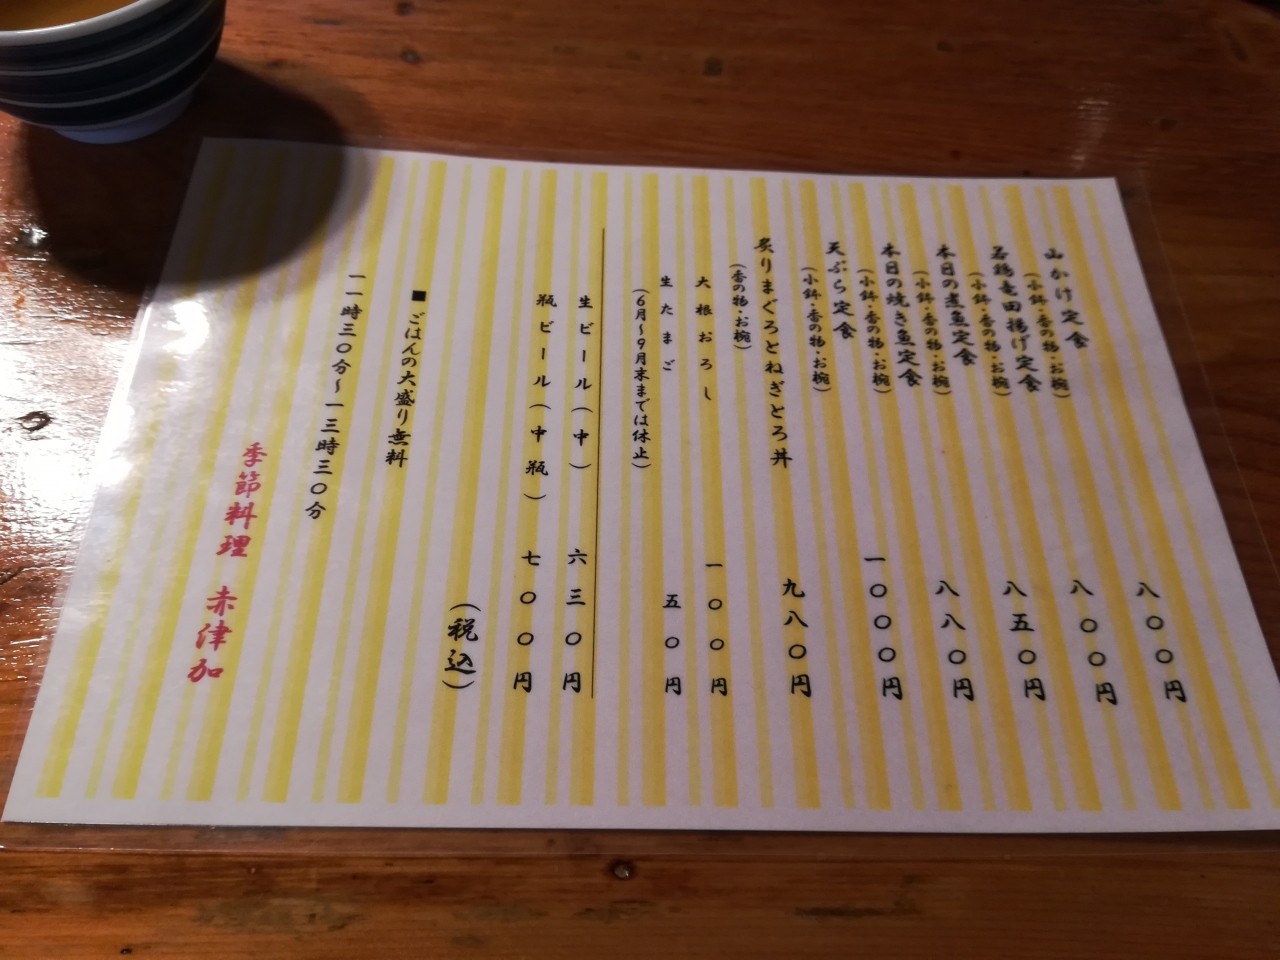 山かけ定食 八〇〇円
(小鉢・香の物・お椀)
若鶏竜田揚げ定食 八〇〇円
(小鉢・香の物・お椀)
本日の煮魚定食 八五〇円
(小鉢・香の物・お椀)
本日の焼き魚定食 八八〇円
(小鉢・香の物・お椀)
天ぷら定食 一〇〇〇円
(小鉢・香の物・お椀)
炙りまぐろとねぎとろ丼 九八〇円
(香の物・お椀)
大根おろし 一〇〇円
生たまご 五〇円
(6月〜9月末までは休止)
生ビール(中) 六三〇円
瓶ビール(中瓶) 七〇〇円
(税込)
■ごはんの大盛り無料
一一時三〇分〜一三時三〇分
季節料理 赤津加